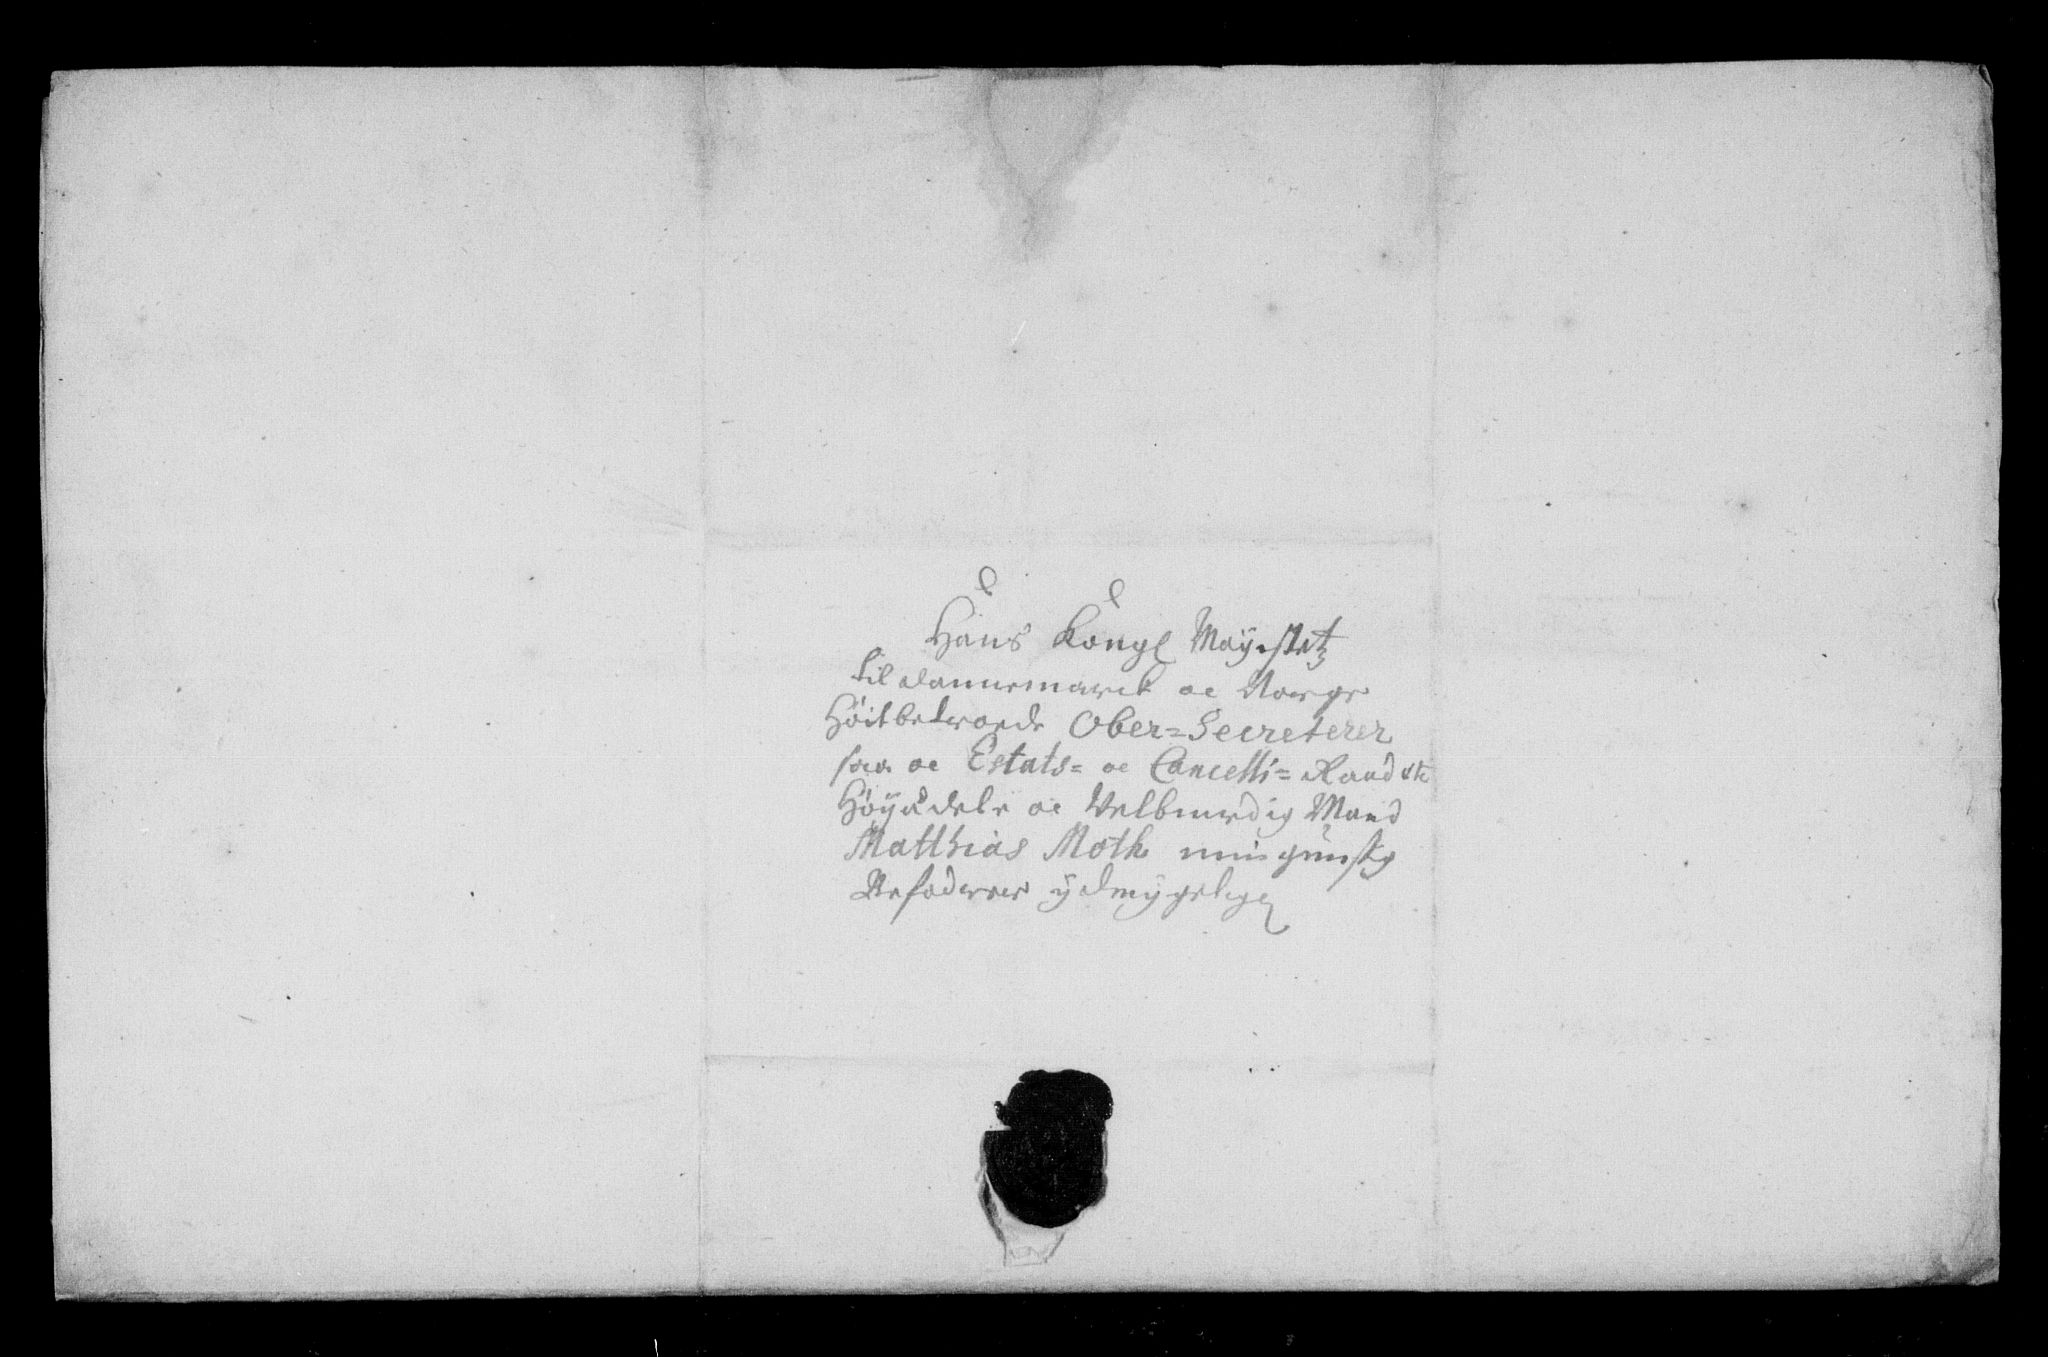 Hans Kongl Mayestetz
til Dannemarck oc Norge
Høitbetroede Ober=Secreterer
saa oc Estats= oc Cancelli= Raad etc
Høyædele oc Velbiurdig Mand
Matthias Moth min gunstig
Befoderer ydmygeligen